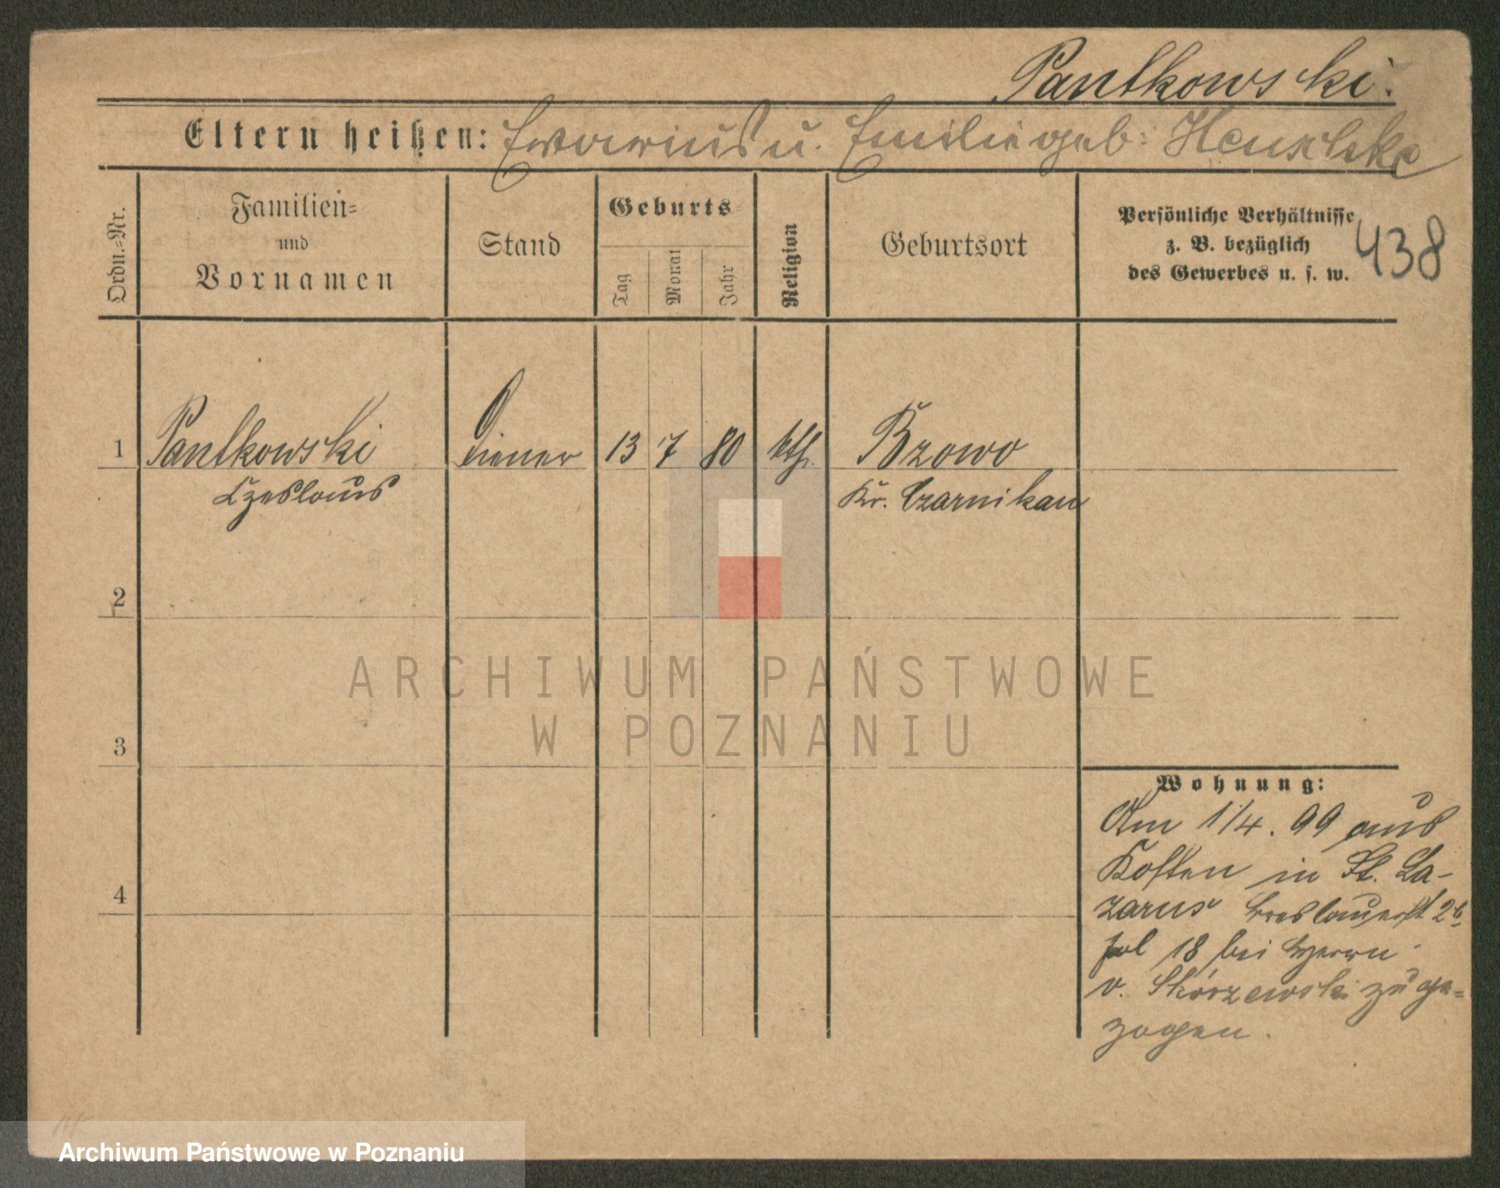 Pantkowski.
Eltern heißen: Evarius u. Emilie geb. Henschke
Ordn.-Nr.
Familien-
und
Vornamen
Stand
Geburts
Tag
Monat
Jahr
Religion
Geburtsort
Persönliche Verhältnisse
z. B. bezüglich
des Gewerbes u. s. w.
438
1 Pantkowski Diener 13 7 80 kth. Bzowo
Czeslaus Kr. Czarnikau
2
ARCHIWUM PAŃSTWOWE
W POZNANIU
3
Wohnung:
Am 1/4. 99 aus
Kosten in St. La-
zarus Breslauerst 26
18 bei Herrn
v. Skórzewski zuge-
zogen.
4
Archiwum Państwowe w Poznaniu